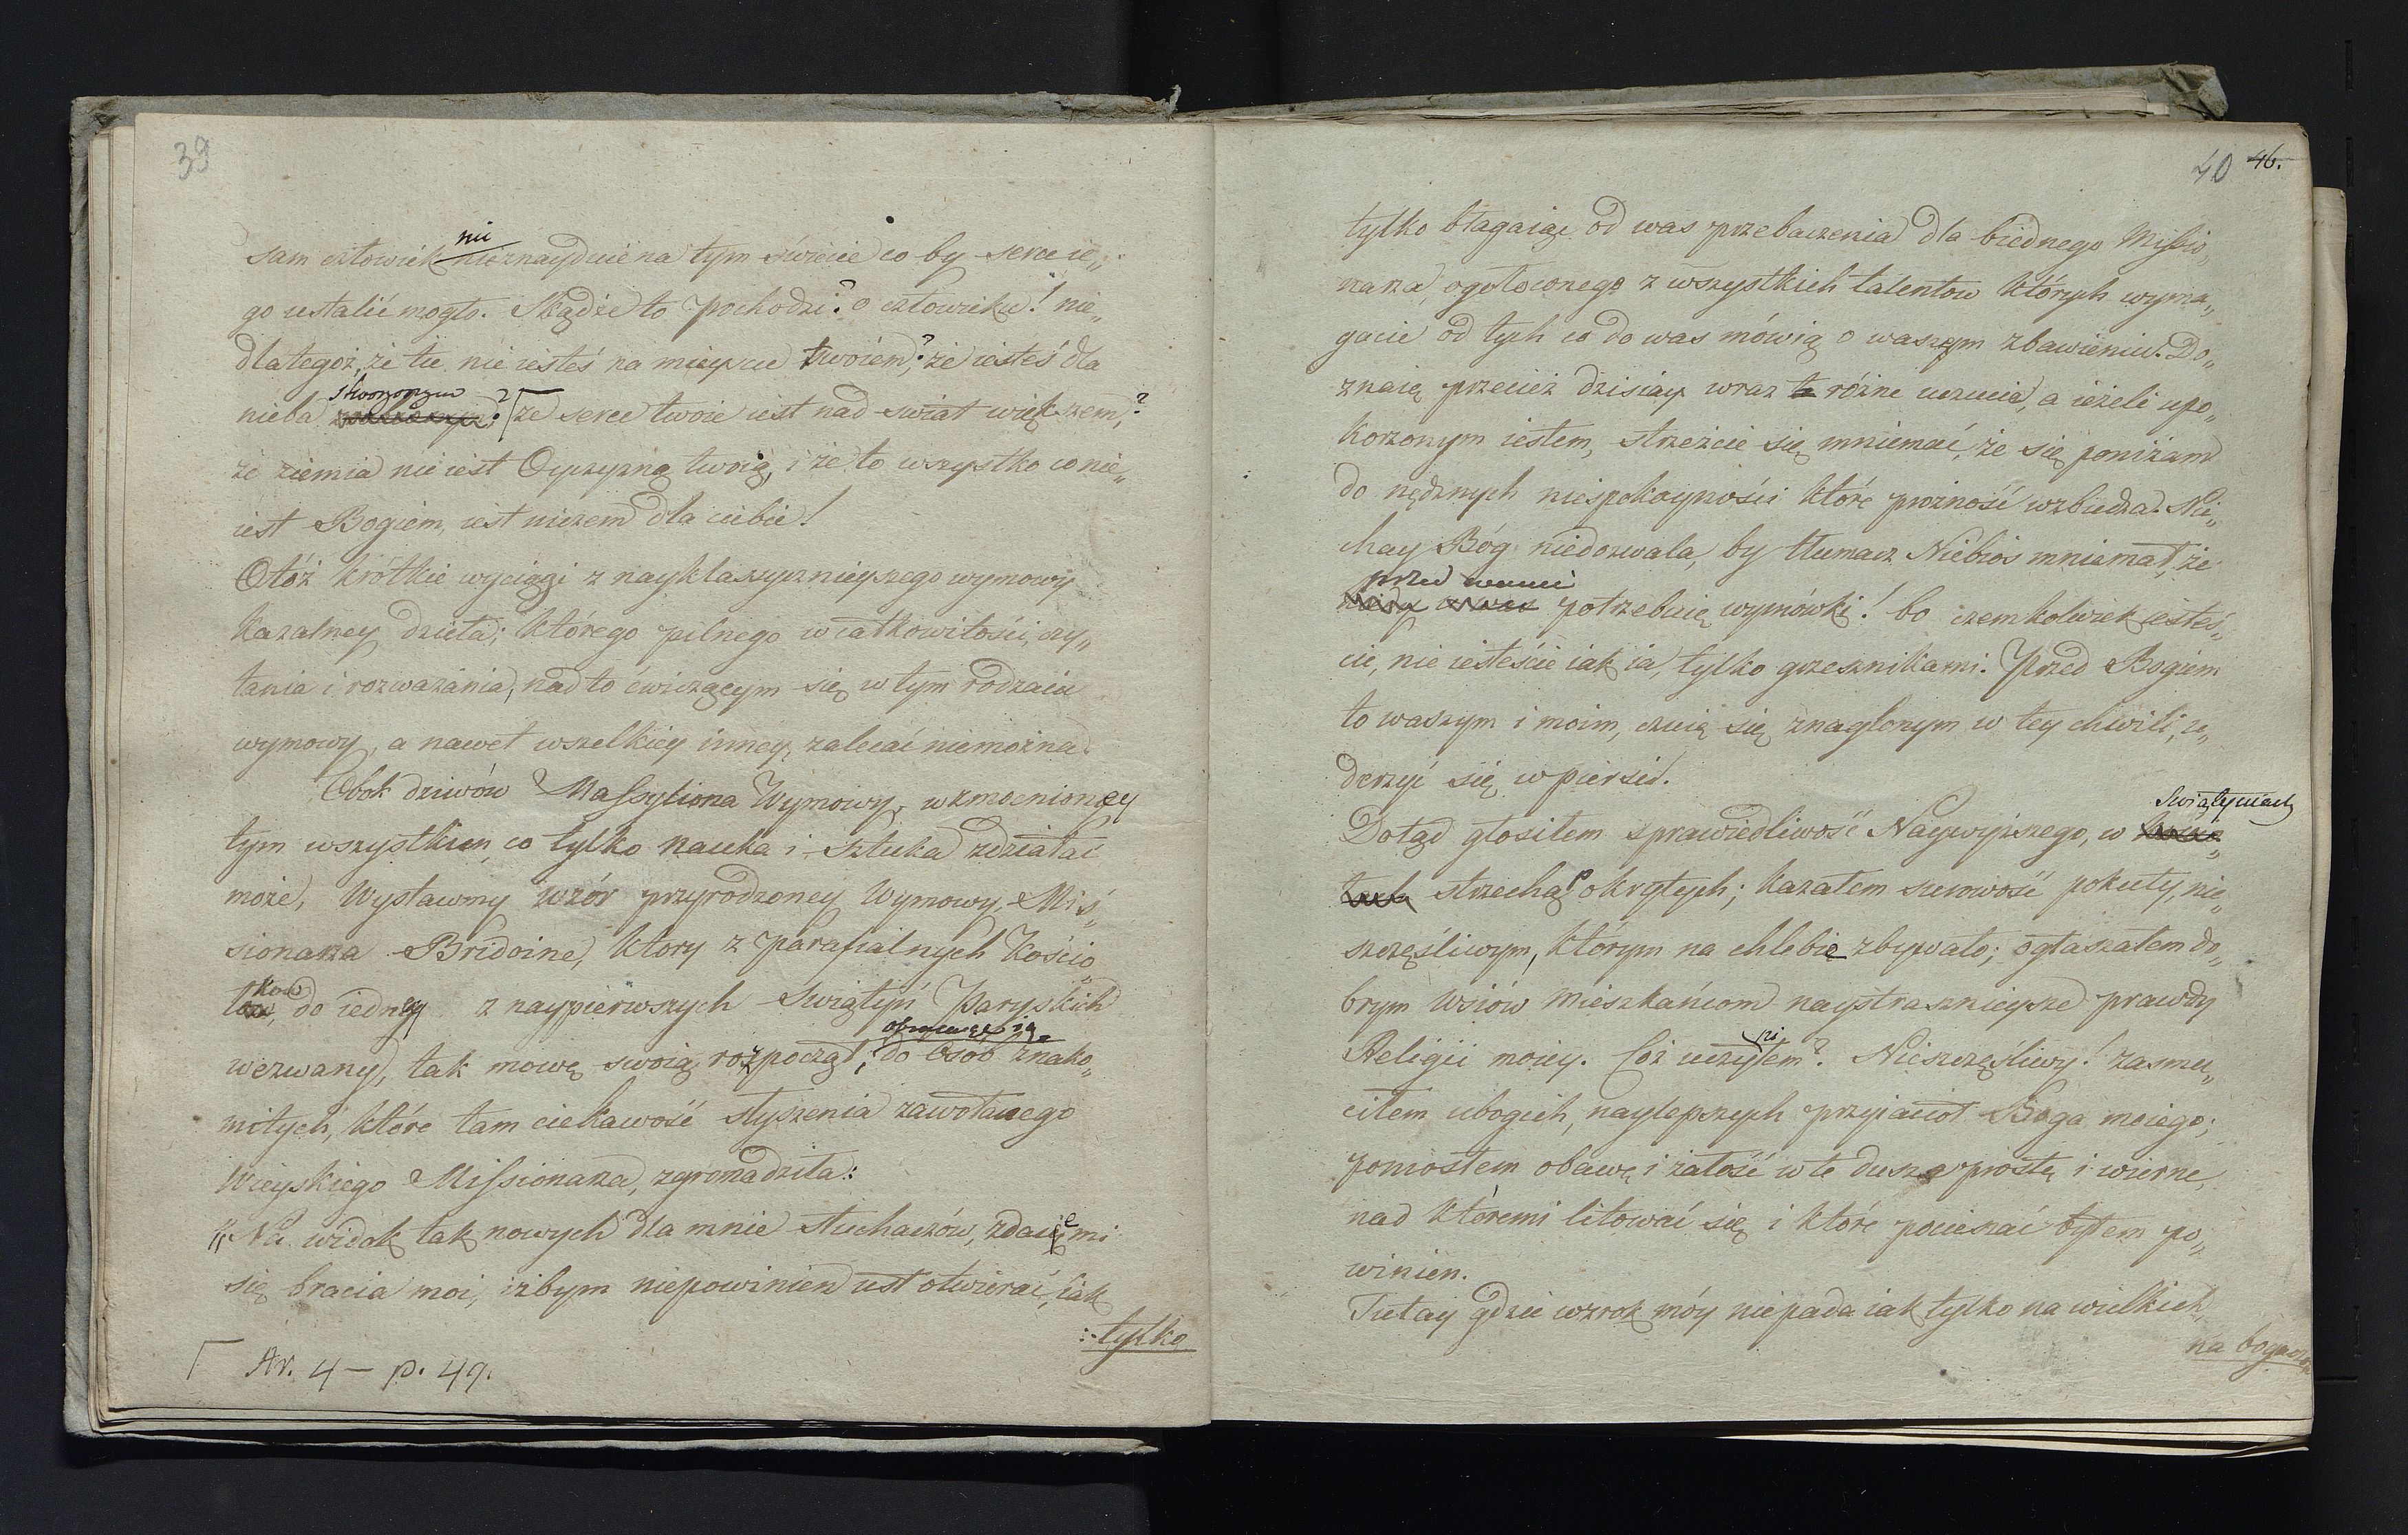 39
nic
sam człowiek nieznayduie na tym świecie co by serce ie„
go ustalić mogło. Skądże to pochodzi? o człowieku! nie„
dlategoż, że tu nie iesteś na mieyscu twoiem? że iesteś dla
stworzonym ?
nieba że serce twoie iest nad świat większem,?
że ziemia nie iest Oyczyzną twoią, i że to wszystko co nie„
iest Bogiem, iest niczem dla ciebie!
Otóż krótkie wyciągi z nayklassycznieyszego wymowy
kazalney dzieła; którego pilnego w całkowitości, czy„
tania i rozważania, nad to ćwiczącym się w tym rodzaiu
wymowy, a nawet wszelkiey inney, zalecać niemożna.
Obok dziwów Massyliona Wymowy, wzmocnioney
tym wszystkiem, co tylko nauka i sztuka zdziałać
może, Wystawmy wzór przyrodzoney Wymowy, Mis„
sionarza Bridoine, ktory z parafialnych Kościo„
łów, do iedney z naypierwszych Swiątyń Paryskich
wezwany, tak mowę swoią rozpoczął, do Osób znako„
mitych, które tam ciekawość słyszenia zawołanego
Wieyskiego Missionarza, zgromadziła:
„Na widok tak nowych dla mnie słuchaczów, zdaie mi
się bracia moi, iżbym niepowinien ust otwierać, iak
tylko
Ar. 4 — p. 49.
40 46.
tylko błagaiąc od was przebaczenia dla biednego Missio„
narza, ogołoconego z wszystkich talentow których wyma„
gacie od tych co do was mówią o waszym zbawieniu. Do„
znaię przecież dzisiay wraz różne uczucia, a ieżeli upo„
korzonym iestem, strzeżcie się mniemać, że się poniżam
do nędznych niespokoyności które prożność wzbudza. Nie„
chay Bóg niedozwala, by tłumacz Niebios mniemał, że
przed wami
potrzebuię wymówki! bo czemkolwiek iesteś„
cie, nie iesteście iak ia, tylko grzesznikami. Przed Bogiem
to waszym i moim, czuię się znaglonym w tey chwili, u„
derzyć się w piersi.
Swiątyniach
Dotąd głosiłem sprawiedliwość Naywyższego, w
strzechą okrytych; kazałem surowość pokuty, nie„
szczęśliwym, którym na chlebie zbywało; ogłaszałem do„
brym Wsiów mieszkańcom naystrasznieysze prawdy
Religii moiey. Cóż uczyniłem? Nieszczęśliwy! zasmu„
ciłem ubogich, naylepszych przyiaciół Boga moiego;
pomostem obawę i żałość w te dusze proste i wierne,
nad któremi litować się i które pocieszać byłem po„
winien.
Tutay gdzie wzrok móy niepada iak tylko na wielkich
na bogaczów